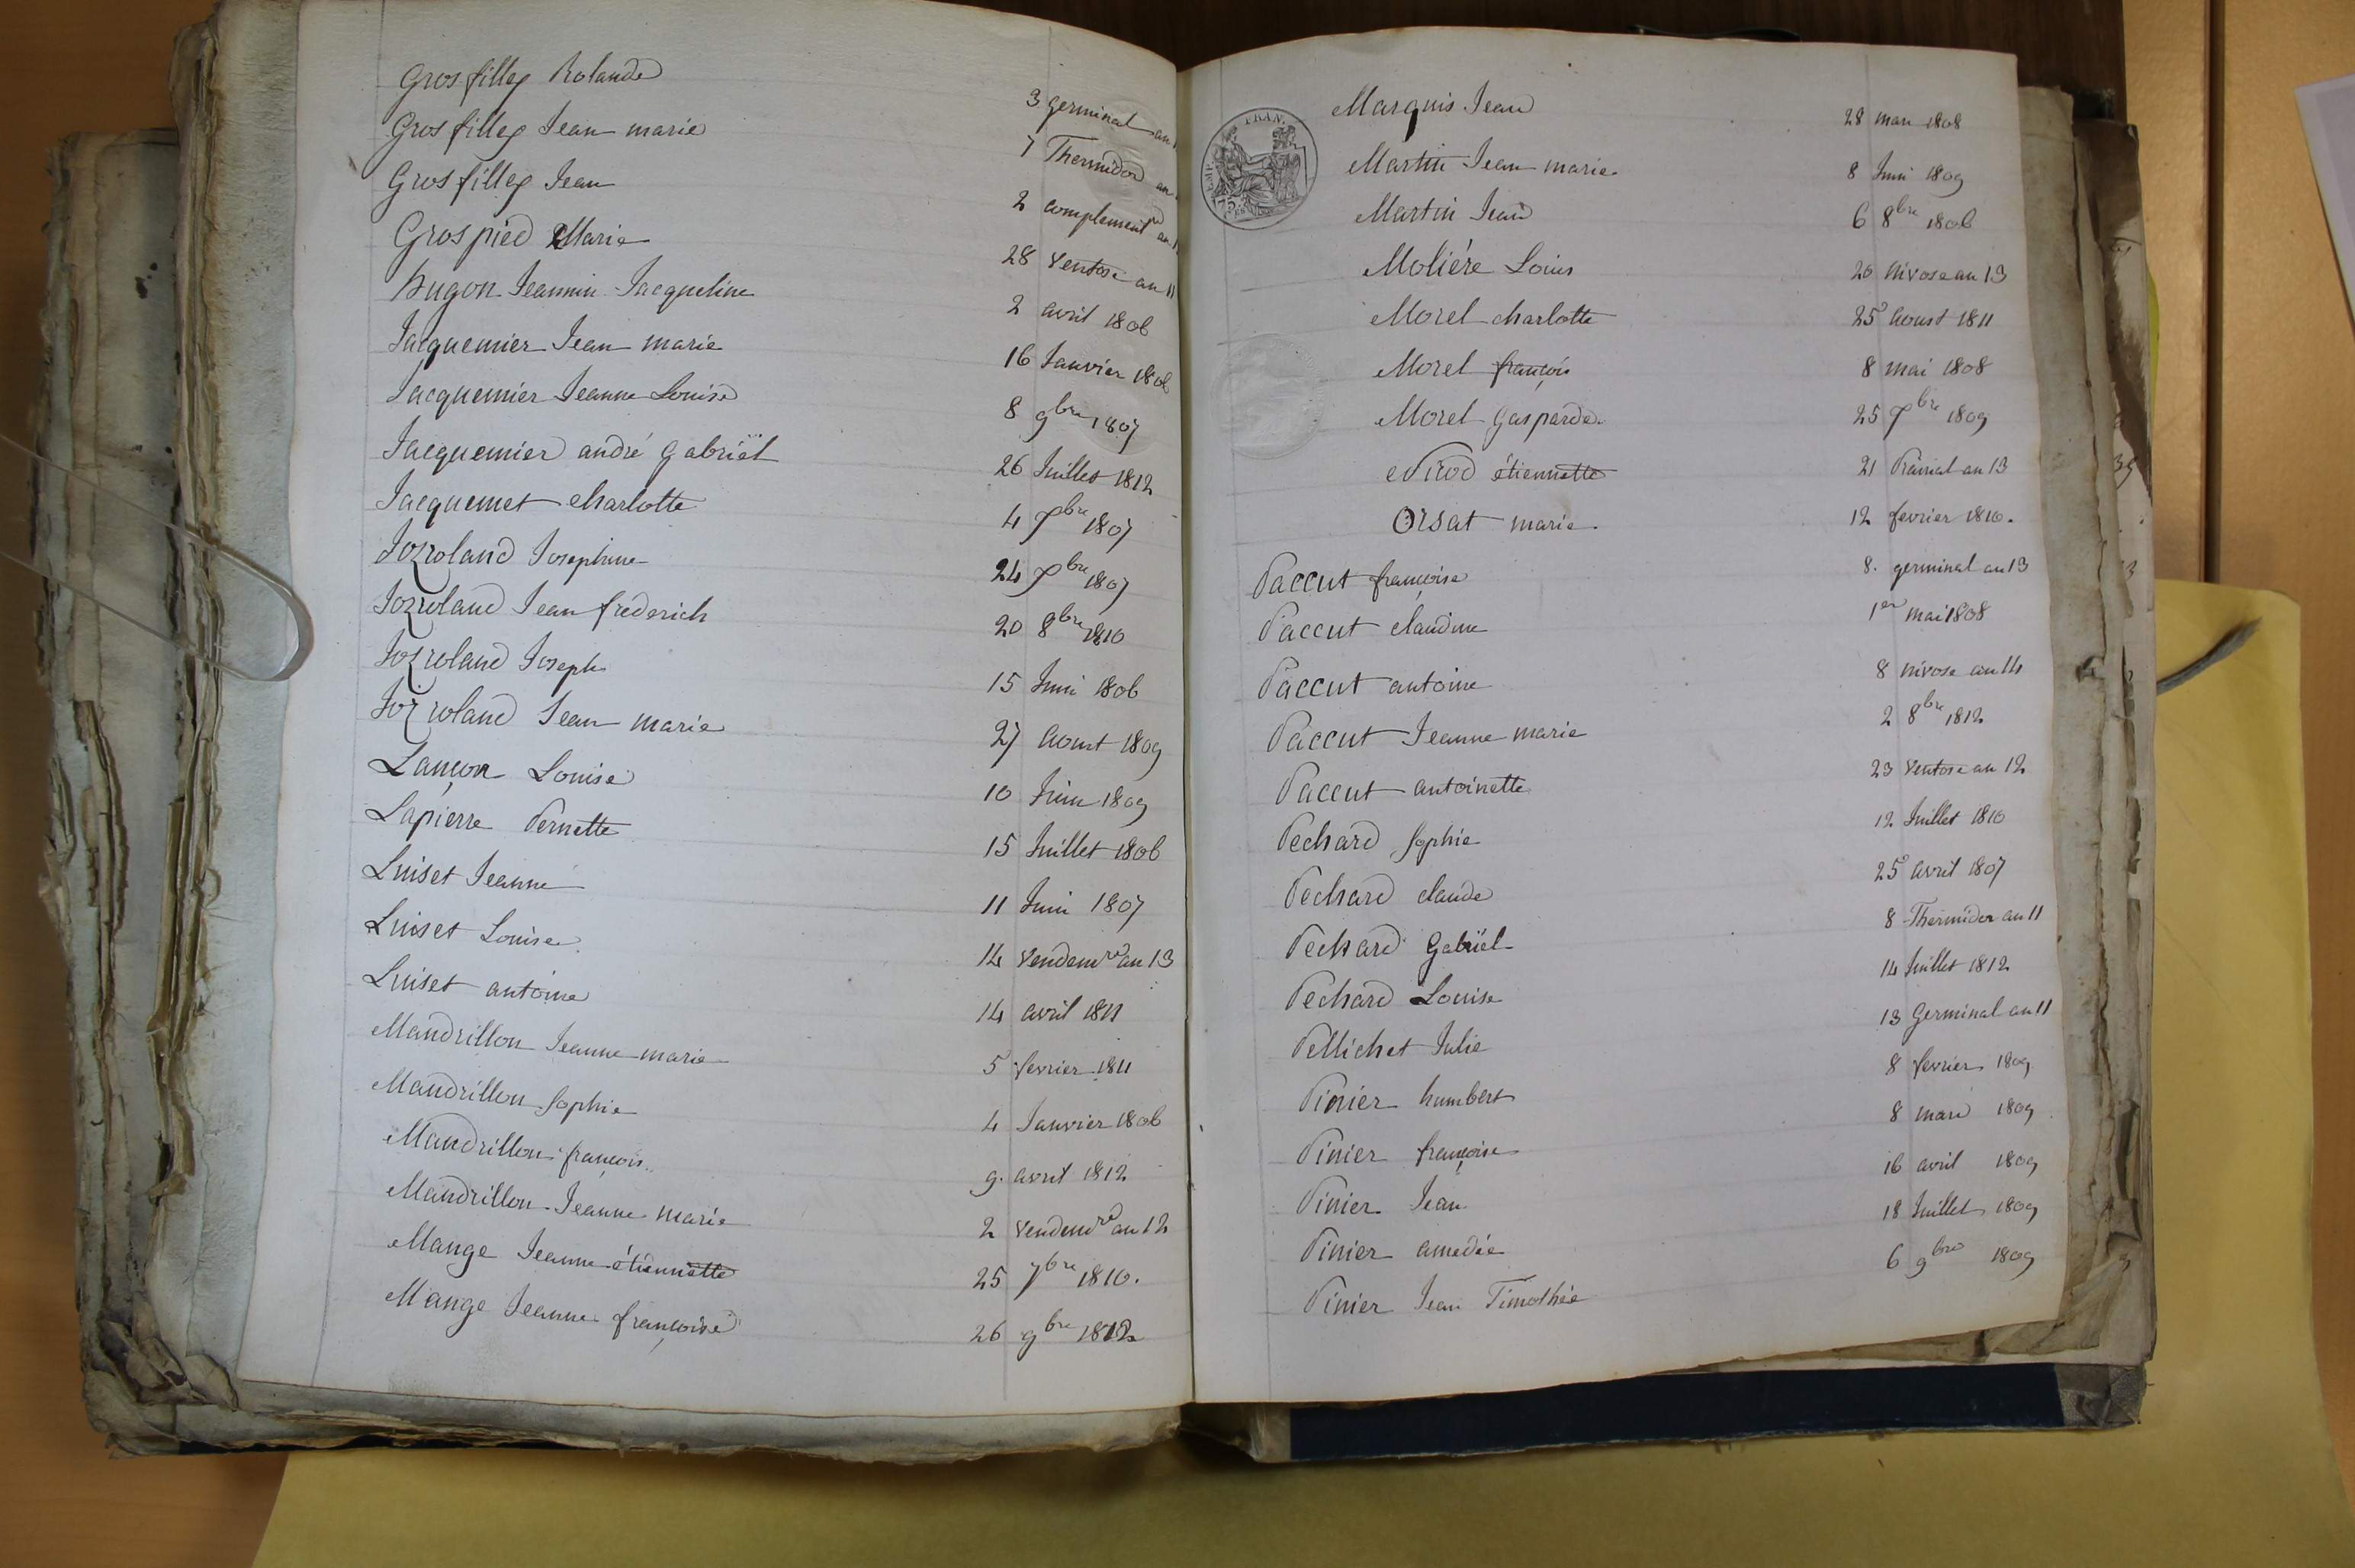 Grosfilley Rolande 3 germinal an
Grosfilley Jean marie 7 Thermidor an
Grosfilley Jean 2 complement.re an
Grospied Marie 28 Ventose an 11
hugon Jeannin Jacqueline 2 avril 1806
Jacquemier Jean marie 16 Janvier 1806
Jacquemier Jeanne Louise 8 9bre 1807
Jacquemier andré gabriël 26 Juillet 1812
Jacquemet charlotte 4 7bre 1807
Jozroland Josephine 24 7bre 1807
Jozroland Jean frederich 20 8bre 1810
Jozroland Joseph 15 Juin 1806
Jozroland Jean marie 27 Aoust 1809
Lançon Louise 10 Juin 1809
Lapierre Pernette 15 Juillet 1806
Luiset Jeanne 11 Juin 1807
Luiset Louise 14 Vendemre an 13
Luiset antoine 14 avril 1811
Mandrillon Jeanne marie 5 fevrier 1811
Mandrillon Sophie 4 Janvier 1806
Mandrillon françois 9. avril 1812
Mandrillon Jeanne marie 2 Vendemre an 12
Mange Jeanne étiennette 25 7bre 1810.
Mange Jeanne françoise 26 9bre 1812
FRAN.
EMP.
Marquis Jean 28 mars 1808
Martin Jean marie 8 Juin 1809
Martin Jean 6 8bre 1806
Moliére Louis 20 Nivose an 13
Morel charlotte 25 Aoust 1811
Morel françois 8 mai 1808
Morel Gasparde 25 7bre 1809
Nirod étiennette 21 Prairial an 13
Orsat marie 12 fevrier 1810.
Paccut françoise 8. germinal an 13
Paccut claudine 1er mai 1808
Paccut antoine 8 nivose an 14
Paccut Jeanne marie 2 8bre 1812
Paccut antoinette 23 Ventose an 12
Pechard Sophie 12 Juillet 1810
Pechard claude 25 avril 1807
Pechard Gabriël 8 Thermidor an 11
Pechard Louise 14 Juillet 1812
Pellichet Julie 13 Germinal an 11
Pinier humbert 8 fevrier 1809
Pinier françoise 8 mars 1809
Pinier Jean 16 avril 1809
Pinier amedée 18 Juillet 1809
Pinier Jean Timothée 6 9bre 1809